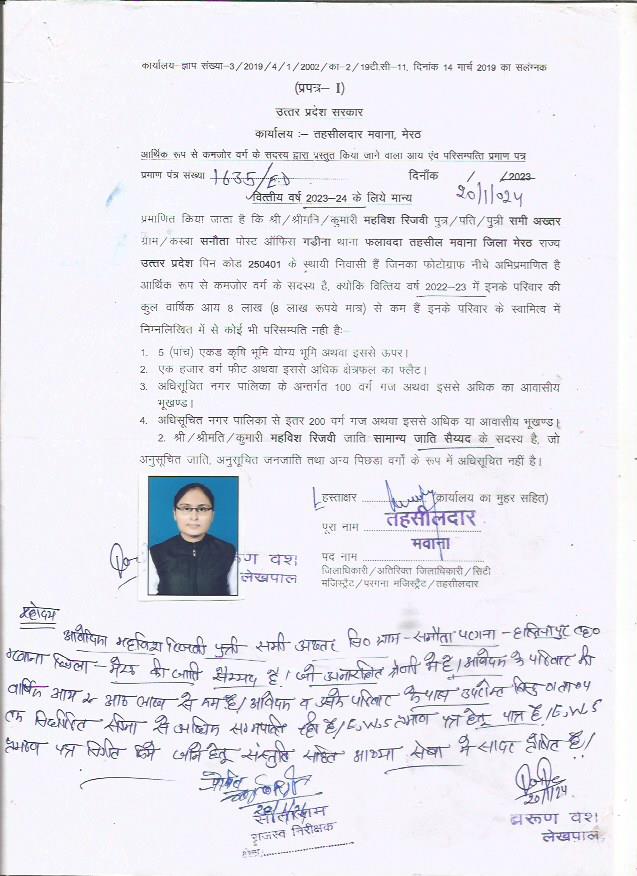 कार्यालय–ज्ञाप संख्या–3/2019/4/1/2002/का–2/19टी.सी–11, दिनांक 14 मार्च 2019 का सलंग्नक
(प्रपत्र– I)
उत्तर प्रदेश सरकार
कार्यालय :– तहसीलदार मवाना, मेरठ
आर्थिक रूप से कमजोर वर्ग के सदस्य द्वारा प्रस्तुत किया जाने वाला आय एंव परिसम्पत्ति प्रमाण पत्र
प्रमाण पत्र संख्या 1635/ED दिनाँक / /2023
20/1/024
वित्तीय वर्ष 2023–24 के लिये मान्य
प्रमाणित किया जाता है कि श्री/श्रीमति/कुमारी महविश रिजवी पुत्र/पति/पुत्री समी अख्तर
ग्राम/कस्बा सनौता पोस्ट ऑफिस गडीना थाना फलावदा तहसील मवाना जिला मेरठ राज्य
उत्तर प्रदेश पिन कोड 250401 के स्थायी निवासी हैं जिनका फोटोग्राफ नीचे अभिप्रमाणित है
आर्थिक रूप से कमजोर वर्ग के सदस्य है, क्योकि वित्तिय वर्ष 2022–23 में इनके परिवार की
कुल वार्षिक आय 8 लाख (8 लाख रूपये मात्र) से कम हैं इनके परिवार के स्वामित्व में
निम्नलिखित में से कोई भी परिसम्पति नही है:–
1. 5 (पांच) एकड कृषि भूमि योग्य भूमि अथवा इससे ऊपर।
2. एक हजार वर्ग फीट अथवा इससे अधिक क्षेत्रफल का फ्लैट।
3. अधिसूचित नगर पालिका के अन्तर्गत 100 वर्ग गज अथवा इससे अधिक का आवासीय
भूखण्ड।
4. अधिसूचित नगर पालिका से इतर 200 वर्ग गज अथवा इससे अधिक या आवासीय भूखण्ड।
2. श्री/श्रीमति/कुमारी महविश रिजवी जाति सामान्य जाति सैय्यद के सदस्य है, जो
अनुसूचित जाति, अनुसूचित जनजाति तथा अन्य पिछडा वर्गो के रूप में अधिसूचित नहीं है।
हस्ताक्षर (कार्यालय का मुहर सहित)
पूरा नाम तहसीलदार
मवाना
पद नाम
जिलाधिकारी/अतिरिक्त जिलाधिकारी/सिटी
मजिस्ट्रैट/परगना मजिस्ट्रैट/तहसीलदार
रूण वश
लेखपाल
महोदय
आवेदिका महविश रिजवी पुत्री समी अख्तर नि० ग्राम - सनौता परगना - हस्तिनापुर तह०
मवाना जिला - मेरठ की जाति सैय्यद है। जो अनारक्षित श्रेणी में है। आवेदिका के परिवार की
वार्षिक आय आठ लाख से कम है। आवेदिका व उसके परिवार के पास उपरोक्त
निर्धारित सीमा से अधिक सम्पत्ति नही है। E.W.S प्रमाण पत्र हेतू पात्र है। E.W.S
प्रमाण पत्र निर्गत किये जाने हेतू संस्तुति सहित आख्या सेवा में सादर प्रेषित है।
20/1/24
सीताराम
राजस्व निरीक्षक
20/1/24
वरूण वश
लेखपाल